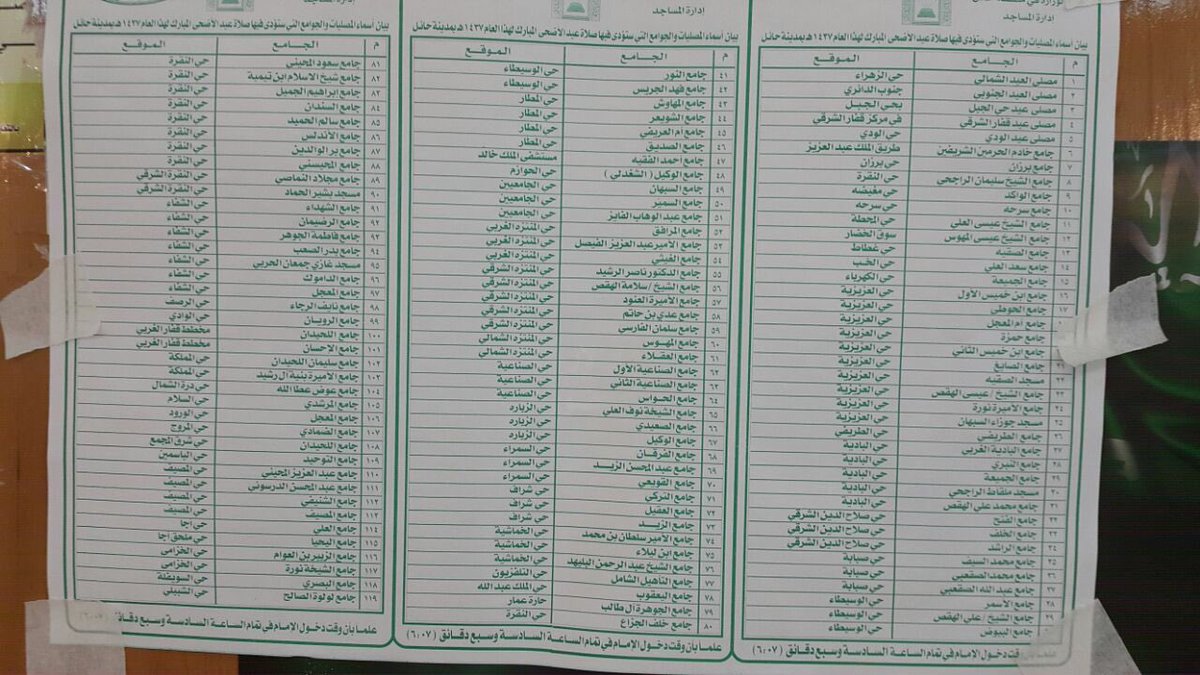 إدارة المساجد
بيان أسماء المصليات والجوامع التي ستؤدى فيها صلاة عيد الأضحى المبارك لهذا العام ١٤٣٧هـ بمدينة حائل
م الجامع الموقع
١ مصلى العيد الشمالي حي الزهراء
٢ مصلى العيد الجنوبي جنوب الدائري
٣ مصلى عيد حي الجبل بحي الجبل
٤ مصلى عيد قفار الشرقي في مركز قفار الشرقي
٥ مصلى عيد الودي حي الودي
٦ جامع خادم الحرمين الشريفين طريق الملك عبد العزيز
٧ جامع برزان حي برزان
٨ جامع الشيخ سليمان الراجحي حي النقرة
٩ جامع الواكد حي مغيضه
١٠ جامع سرحه حي سرحه
١١ جامع الشيخ عيسى العلي حي المحطة
١٢ جامع الشيخ عيسى المهوس سوق الخضار
١٣ جامع الصقيه حي غطاط
١٤ جامع سعد العلي حي الخب
١٥ جامع الجميعة حي الكهرباء
١٦ جامع ابن خميس الأول حي العزيزية
١٧ جامع الحوطي حي العزيزية
جامع أم المعجل حي العزيزية
جامع حمزة حي العزيزية
جامع ابن خميس الثاني حي العزيزية
٢١ جامع الصايغ حي العزيزية
٢٢ مسجد الصقيه حي العزيزية
٢٣ جامع الشيخ / عيسى الهقص حي العزيزية
٢٤ جامع الاميرة نورة حي العزيزية
٢٥ مسجد جوزاء السبهان حي العزيزية
٢٦ جامع الطريفي حي الطريفي
٢٧ جامع البادية الغربي حي البادية
٢٨ جامع النبري حي البادية
٢٩ جامع الجميعة حي البادية
٣٠ مسجد ملقاط الراجحي حي البادية
٣١ جامع محمد علي الهقص حي البادية
٣٢ جامع الفتح حي صلاح الدين الشرقي
٣٣ جامع الخلف حي صلاح الدين الشرقي
٣٤ جامع الراشد حي صلاح الدين الشرقي
٣٥ جامع محمد السيف حي صبابة
٣٦ جامع محمد الصقعبي حي صبابة
٣٧ جامع عبد الله الصقعبي حي صبابة
٣٨ جامع الأسمر حي الوسيطاء
٣٩ جامع الشيخ / علي الهقص حي الوسيطاء
جامع البيوض حي الوسيطاء
علما بأن وقت دخول الإمام في تمام الساعة السادسة وسبع دقائق (٦:٠٧)
إدارة المساجد
بيان أسماء المصليات والجوامع التي ستؤدى فيها صلاة عيد الأضحى المبارك لهذا العام ١٤٣٧هـ بمدينة حائل
م الجامع الموقع
٤١ جامع النور حي الوسيطاء
٤٢ جامع فهد الجريس حي الوسيطاء
٤٣ جامع المهاوش حي المطار
٤٤ جامع الشويعر حي المطار
٤٥ جامع أم العريفي حي المطار
٤٦ جامع الصديق حي المطار
٤٧ جامع احمد الفقيه مستشفى الملك خالد
٤٨ جامع الوكيل ( الشغدلي ) حي الحوازم
٤٩ جامع السبهان حي الجامعيين
٥٠ جامع السمير حي الجامعيين
٥١ جامع عبد الوهاب الفايز حي الجامعيين
٥٢ جامع المرافق حي المنتزه الغربي
٥٣ جامع الامير عبد العزيز الفيصل حي المنتزه الغربي
٥٤ جامع الغيثي حي المنتزه الغربي
٥٥ جامع الدكتور ناصر الرشيد حي المنتزه الشرقي
٥٦ جامع الشيخ / سلامة الهقص حي المنتزه الشرقي
٥٧ جامع الأميرة العنود حي المنتزه الشرقي
٥٨ جامع عدي بن حاتم حي المنتزه الشرقي
٥٩ جامع سلمان الفارسي حي المنتزه الشرقي
٦٠ جامع المهوس حي المنتزه الشمالي
٦١ جامع العقلاء حي المنتزه الشمالي
٦٢ جامع الصناعية الأول حي الصناعية
٦٣ جامع الصناعية الثاني حي الصناعية
٦٤ جامع الحواس حي الصناعية
٦٥ جامع الشيخة نوف العلي حي الزباره
٦٦ جامع الصعيدي حي الزباره
٦٧ جامع الوكيل حي الزباره
٦٨ جامع الفرقان حي السمراء
٦٩ جامع عبد المحسن الزيد حي السمراء
٧٠ جامع القويعي حي السمراء
٧١ جامع التركي حي شراف
٧٢ جامع العقيل حي شراف
٧٣ جامع الزيد حي شراف
٧٤ جامع الامير سلطان بن محمد حي الخماشية
٧٥ جامع ابن ليلاء حي الخماشية
٧٦ جامع الشيخ عبد الرحمن البليهد حي الخماشية
٧٧ جامع التاهيل الشامل حي التلفزيون
٧٨ جامع اليعقوب حي الملك عبد الله
٧٩ جامع الجوهرة ال طالب حارة عمار
٨٠ جامع خلف الجزاع حي النقرة
علما بأن وقت دخول الإمام في تمام الساعة السادسة وسبع دقائق (٦:٠٧)
إدارة المساجد
بيان أسماء المصليات والجوامع التي ستؤدى فيها صلاة عيد الأضحى المبارك لهذا العام ١٤٣٧هـ بمدينة حائل
م الجامع الموقع
٨١ جامع سعود المحيني حي النقرة
٨٢ جامع شيخ الاسلام ابن تيمية حي النقرة
٨٣ جامع إبراهيم الجميل حي النقرة
٨٤ جامع السندان حي النقرة
٨٥ جامع سالم الحميد حي النقرة
٨٦ جامع الأندلس حي النقرة
٨٧ جامع بر الوالدين حي النقرة
٨٨ جامع المحيسني حي النقرة
٨٩ جامع مجلاد التماصي حي النقرة الشرقي
٩٠ مسجد بشير الحماد حي النقرة الشرقي
٩١ جامع الشهداء حي الشفاء
٩٢ جامع الرضيمان حي الشفاء
٩٣ جامع فاطمة الجوهر حي الشفاء
٩٤ جامع بدر الصعب حي الشفاء
٩٥ مسجد غازي جمعان الحربي حي الشفاء
٩٦ جامع الداموك حي الشفاء
٩٧ جامع المعجل حي الشفاء
٩٨ جامع نايف الرجاء حي الرصف
٩٩ جامع الرويان حي الوادي
١٠٠ جامع اللحيدان مخطط قفار الغربي
١٠١ جامع الإحسان مخطط قفار الغربي
١٠٢ جامع سليمان اللحيدان حي المملكة
١٠٣ جامع الاميرة بنية ال رشيد حي المملكة
١٠٤ جامع عوض عطا الله حي درة الشمال
١٠٥ جامع المرشدي حي السلام
١٠٦ جامع المعجل حي الورود
١٠٧ جامع الضمادي حي المروج
١٠٨ جامع اللحيدان حي شرق المجمع
١٠٩ جامع التوحيد حي الياسمين
١١٠ جامع عبد العزيز المحيني حي المصيف
١١١ جامع عبد المحسن الدرسوني حي المصيف
١١٢ جامع الشنيفي حي المصيف
١١٣ جامع المصيف حي المصيف
١١٤ جامع العلي حي أجا
١١٥ جامع اليحيا حي ملحق أجا
١١٦ جامع الزبير بن العوام حي الخزامى
١١٧ جامع الشيخة نورة حي الخزامى
١١٨ جامع البصري حي السويفلة
١١٩ جامع لولوة الصالح حي الشبيلي
علما بأن وقت دخول الإمام في تمام الساعة السادسة وسبع دقائق (٦:٠٧)